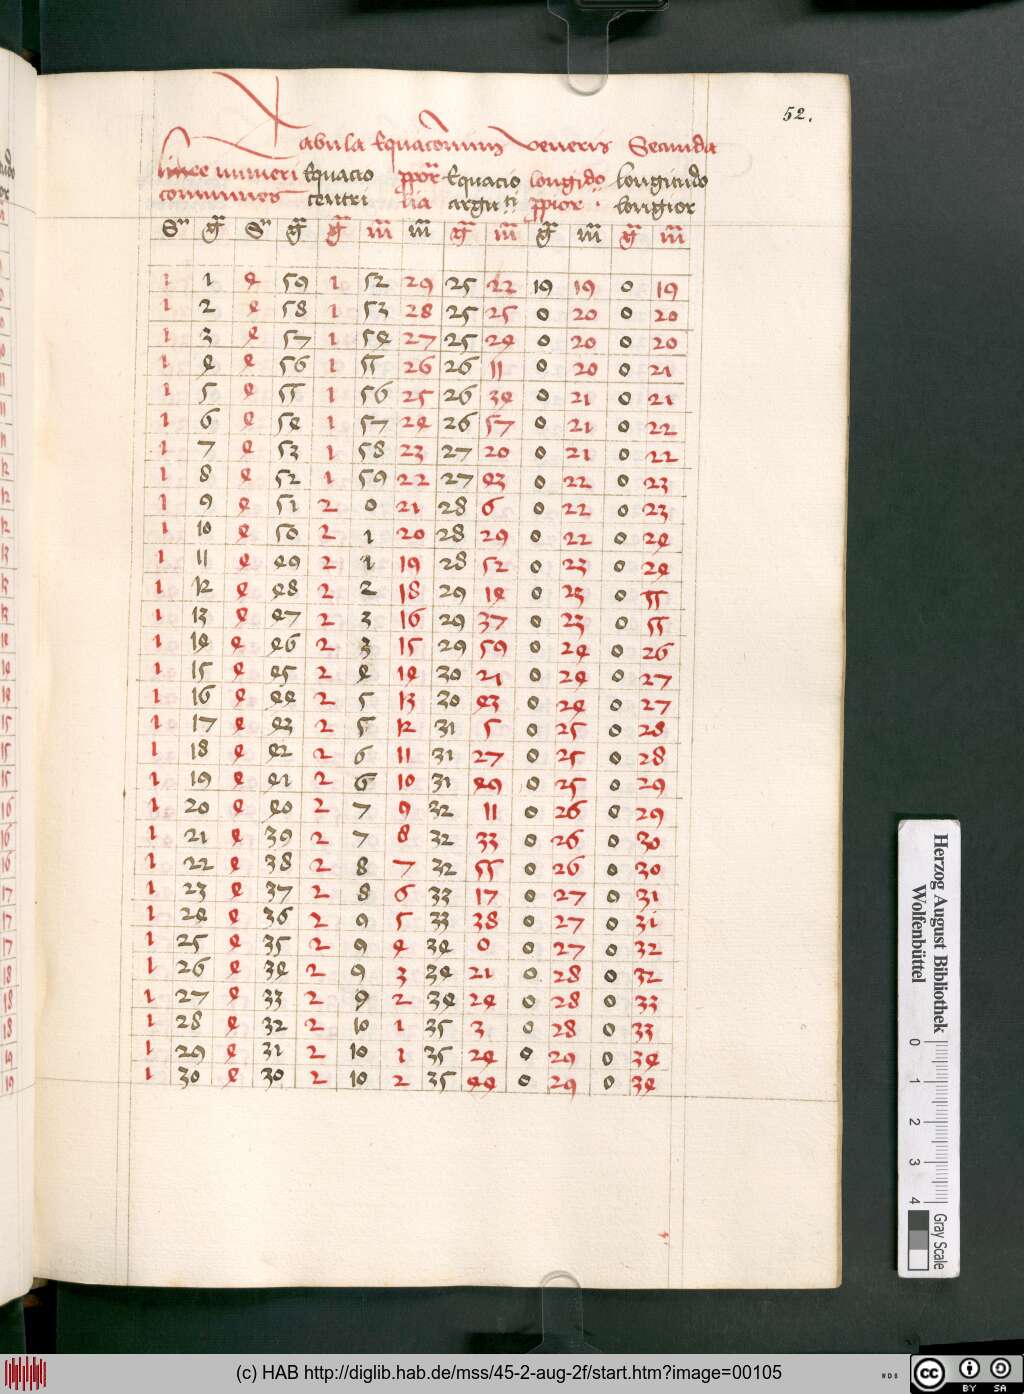 52.
Tabula Equacionum Veneris Secunda
linee numeri Equacio ppor Equacio longido longitudo
communes centri lia argu ti ppior longior
S g S g g m m g m g m g m
1 1 4 59 1 52 29 25 22 19 19 0 19
1 2 4 58 1 53 28 25 25 0 20 0 20
1 3 4 57 1 54 27 25 24 0 20 0 20
1 4 4 56 1 55 26 26 11 0 20 0 21
1 5 4 55 1 56 25 26 34 0 21 0 21
1 6 4 54 1 57 24 26 57 0 21 0 22
1 7 4 53 1 58 23 27 20 0 21 0 22
1 8 4 52 1 59 22 27 43 0 22 0 23
1 9 4 51 2 0 21 28 6 0 22 0 23
1 10 4 50 2 1 20 28 29 0 22 0 24
1 11 4 49 2 1 19 28 52 0 23 0 24
1 12 4 48 2 2 18 29 14 0 23 0 55
1 13 4 47 2 3 16 29 37 0 23 0 55
1 14 4 46 2 3 15 29 59 0 24 0 26
1 15 4 45 2 4 14 30 21 0 24 0 27
1 16 4 44 2 5 13 30 43 0 24 0 27
1 17 4 43 2 5 12 31 5 0 25 0 28
1 18 4 42 2 6 11 31 27 0 25 0 28
1 19 4 41 2 6 10 31 49 0 25 0 29
1 20 4 40 2 7 9 32 11 0 26 0 29
1 21 4 39 2 7 8 32 33 0 26 0 30
1 22 4 38 2 8 7 32 55 0 26 0 30
1 23 4 37 2 8 6 33 17 0 27 0 31
1 24 4 36 2 9 5 33 38 0 27 0 31
1 25 4 35 2 9 4 34 0 0 27 0 32
1 26 4 34 2 9 3 34 21 0 28 0 32
1 27 4 33 2 9 2 34 24 0 28 0 33
1 28 4 32 2 10 1 35 3 0 28 0 33
1 29 4 31 2 10 1 35 24 0 29 0 34
1 30 4 30 2 10 2 35 44 0 29 0 34
Herzog August Bibliothek
Wolfenbüttel
0 1 2 3 4
Gray Scale
(c) HAB http://diglib.hab.de/mss/45-2-aug-2f/start.htm?image=00105
cc BY SA